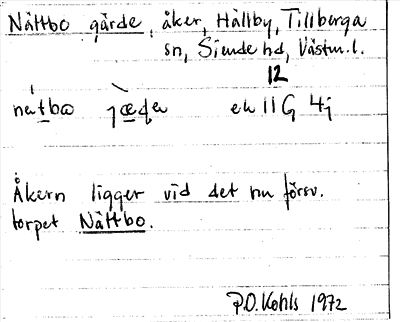 Nåttbo gärde, åker, Hällby, Tillberga
sn, Siende hd, Västm.l.
12
ek 11G 4j
Åkern ligger vid det nu försv.
torpet Nåttbo.
P.O. Kohls 1972